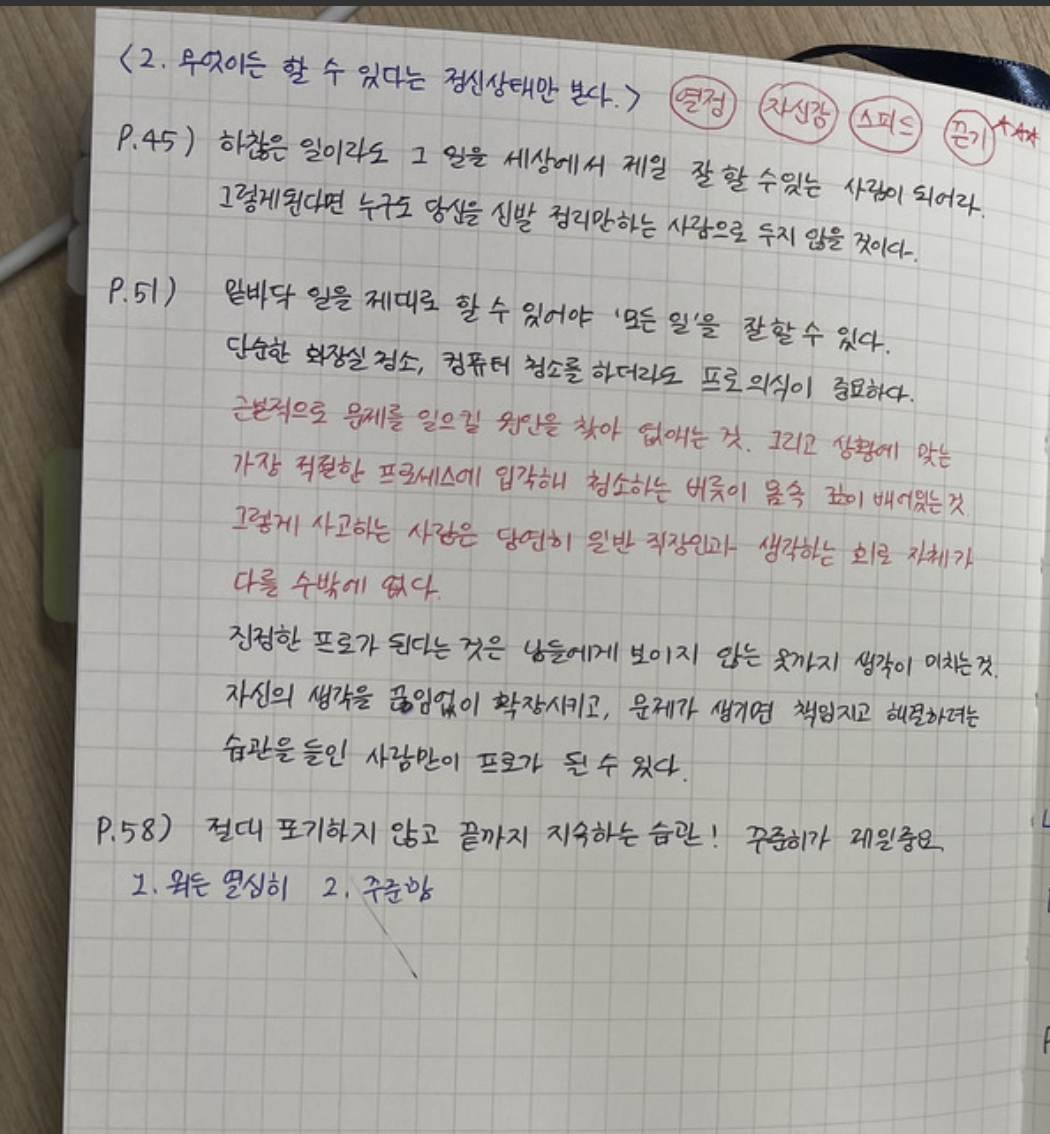 <2. 무엇이든 할 수 있다는 정신상태만 본다.> 열정 자신감 스피드 끈기 ★★★
P.45) 하찮은 일이라도 그 일을 세상에서 제일 잘 할 수 있는 사람이 되어라.
그렇게된다면 누구도 당신을 신발 정리만하는 사람으로 두지 않을 것이다.
P.51) 밑바닥 일을 제대로 할 수 있어야 '모든 일'을 잘할 수 있다.
단순한 화장실 청소, 컴퓨터 청소를 하더라도 프로 의식이 중요하다.
근본적으로 문제를 일으킬 원인을 찾아 없애는 것. 그리고 상황에 맞는
가장 적절한 프로세스에 입각해 청소하는 버릇이 몸속 깊이 배어있는 것.
그렇게 사고하는 사람은 당연히 일반 직장인과 생각하는 회로 자체가
다를 수밖에 없다.
진정한 프로가 된다는 것은 남들에게 보이지 않는 곳까지 생각이 미치는 것.
자신의 생각을 끊임없이 확장시키고, 문제가 생기면 책임지고 해결하려는
습관을 들인 사람만이 프로가 될 수 있다.
P.58) 절대 포기하지 않고 끝까지 지속하는 습관! 꾸준히가 제일중요
1. 뭐든 열심히 2. 꾸준함